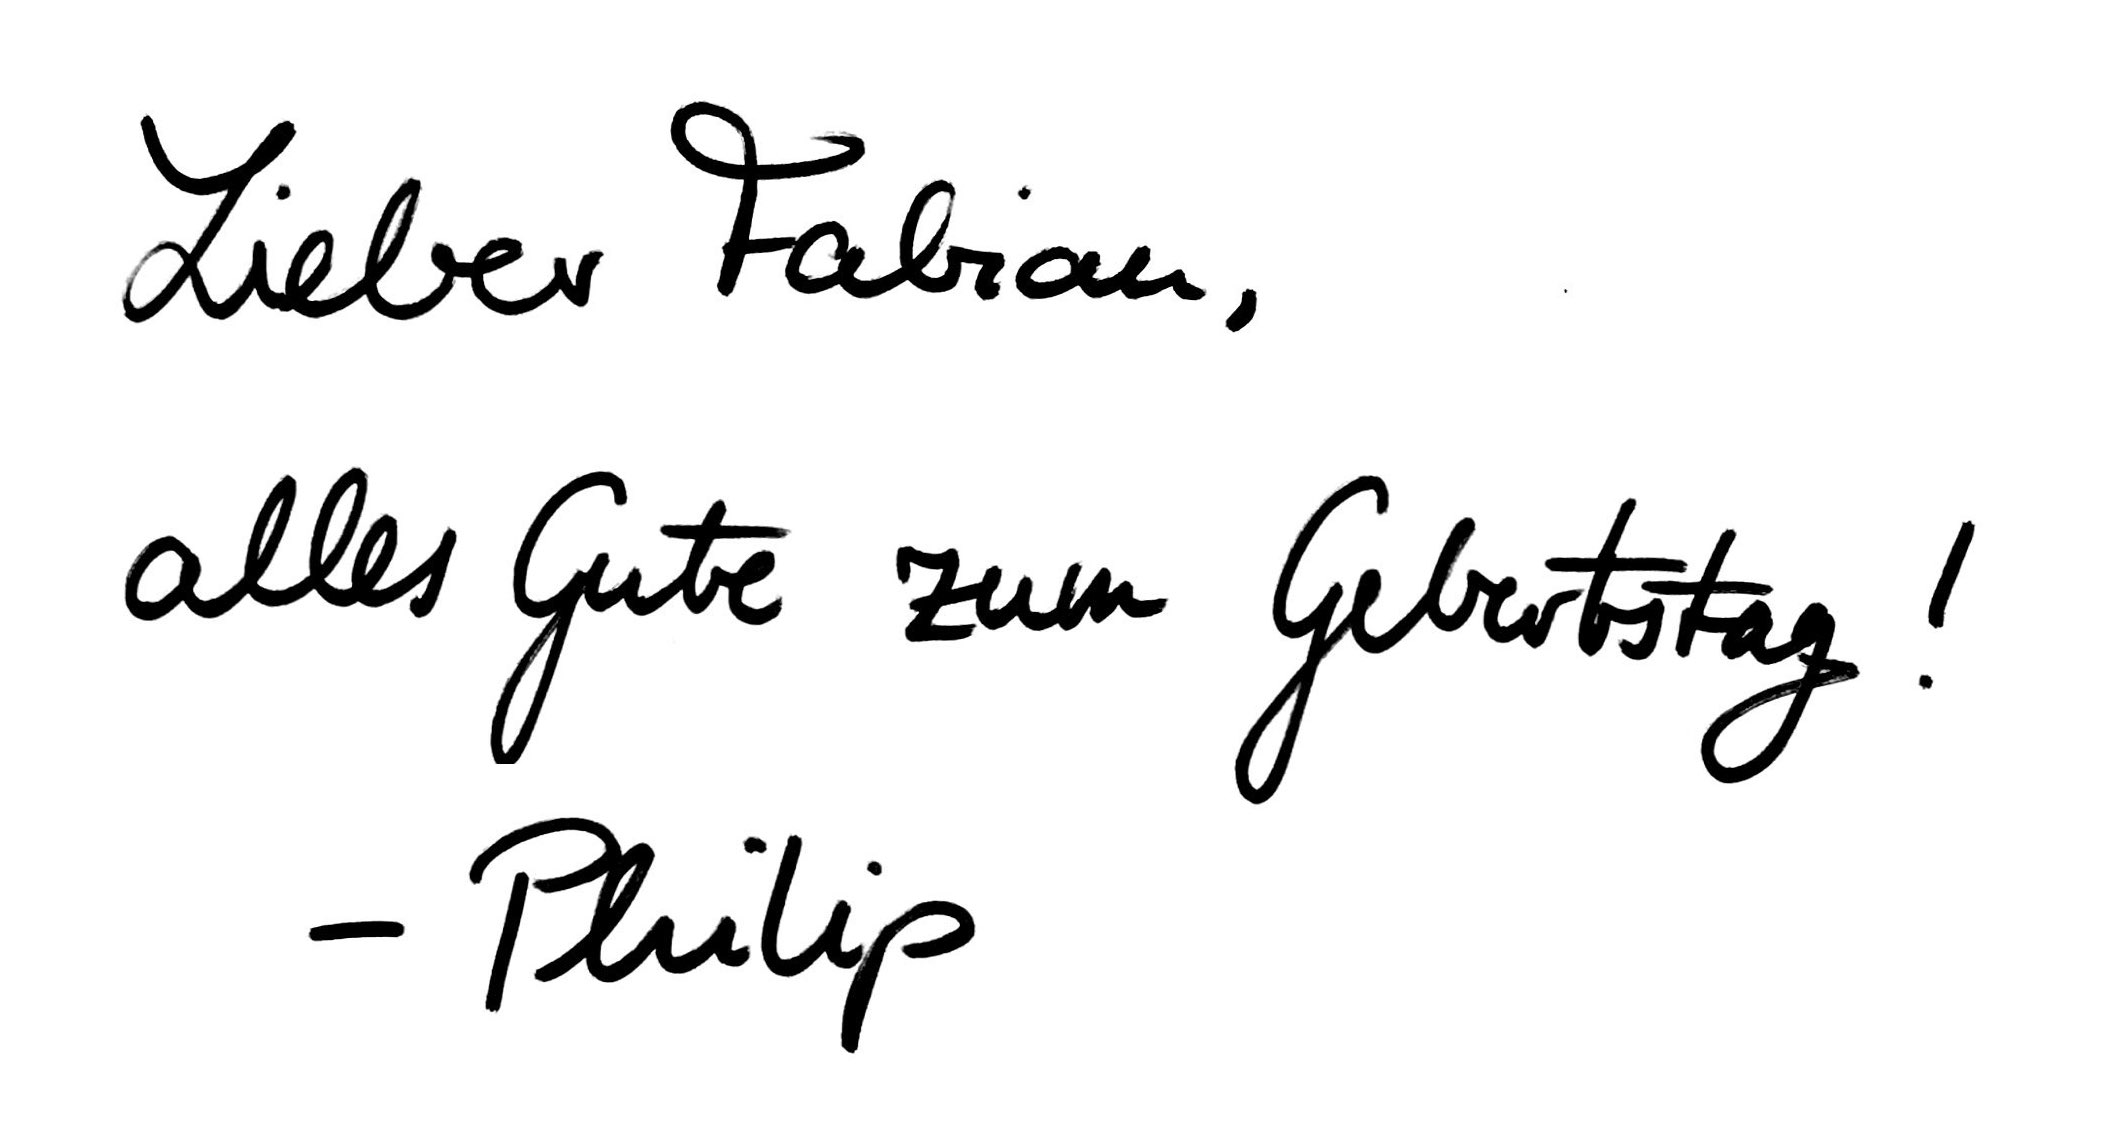 Lieber Fabian,
alles Gute zum Geburtstag!
– Philip